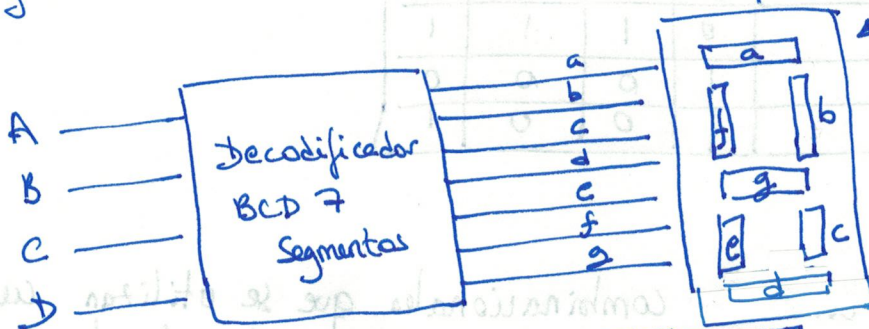 A
B
C
D
Decodificador
BCD 7
Segmentos
a
b
c
d
e
f
g
a
f
b
g
e
c
d